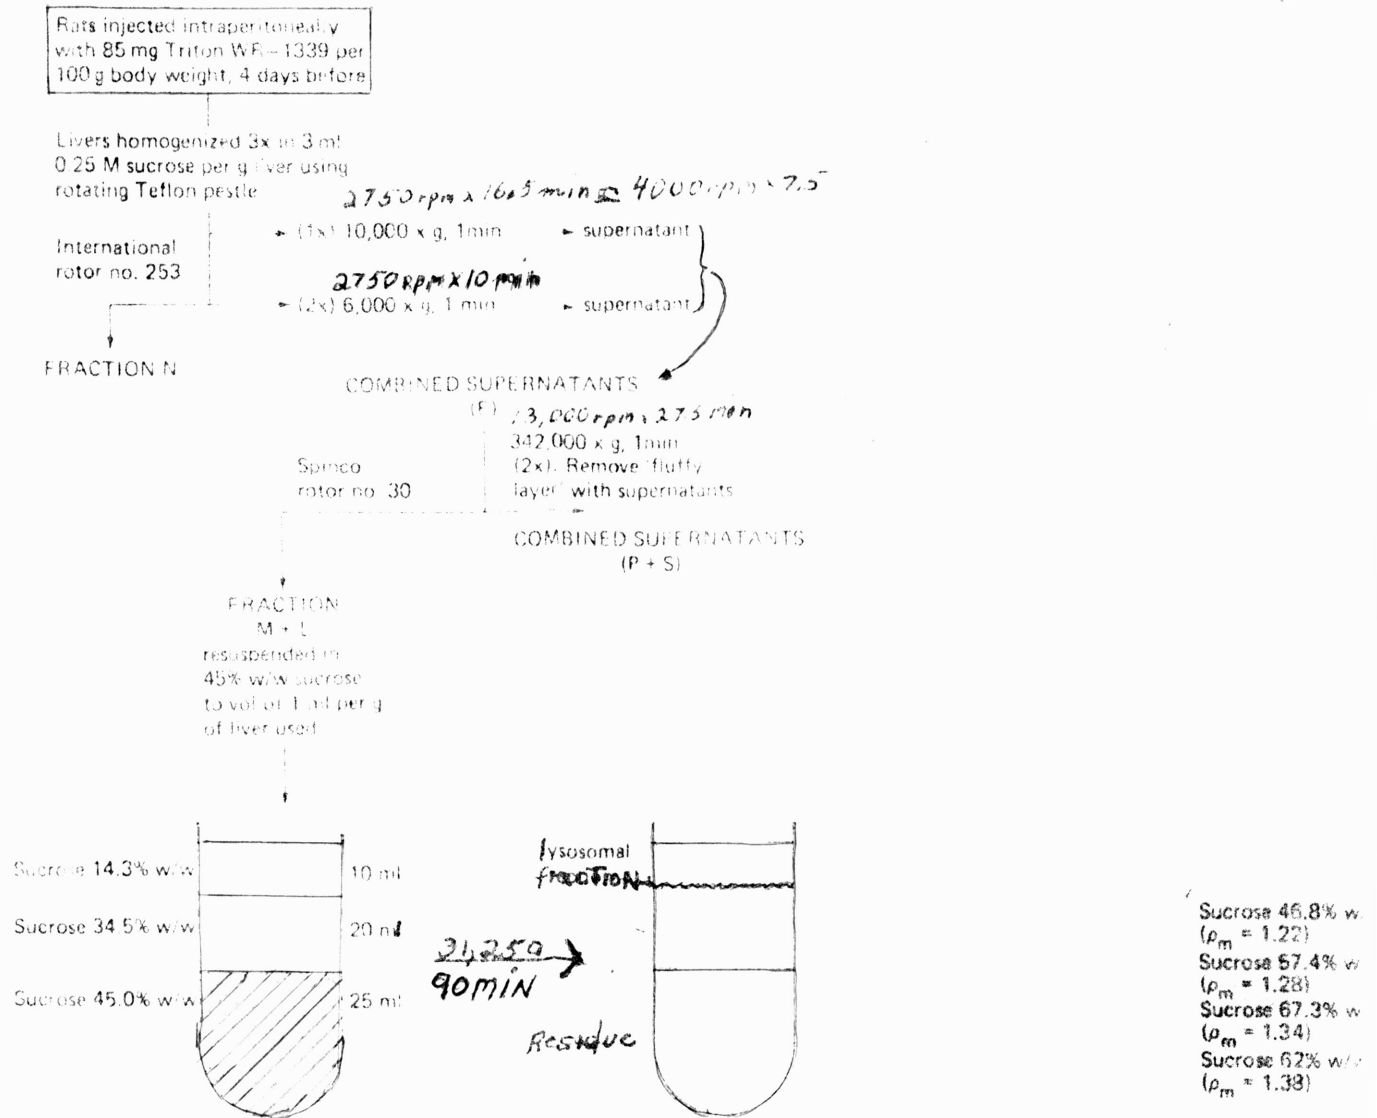 Rats injected intraperitoneally
with 85 mg Triton WR-1339 per
100 g body weight, 4 days before
Livers homogenized 3x in 3 ml
0.25 M sucrose per g liver using
rotating Teflon pestle
2750 rpm x 16.5 min = 4000 rpm x 7.5
(1x) 10,000 x g, 1min
supernatant
International
rotor no. 253
2750 rpm x 10 min
(2x) 6,000 x g, 1 min
supernatant
FRACTION N
COMBINED SUPERNATANTS
(E)
13,000 rpm x 27.5 min
342,000 x g, 1min
(2x). Remove "fluffy
layer" with supernatants
Spinco
rotor no. 30
COMBINED SUPERNATANTS
(P + S)
FRACTION
M + L
resuspended in
45% w/w sucrose
to vol of 1 ml per g
of liver used
Sucrose 14.3% w/w
10 ml
Sucrose 34.5% w/w
20 ml
Sucrose 45.0% w/w
25 ml
90 MIN
lysosomal
fraction
Residue
Sucrose 46.8% w
(ρm = 1.22)
Sucrose 57.4% w
(ρm = 1.28)
Sucrose 67.3% w
(ρm = 1.34)
Sucrose 62% w/
(ρm = 1.38)